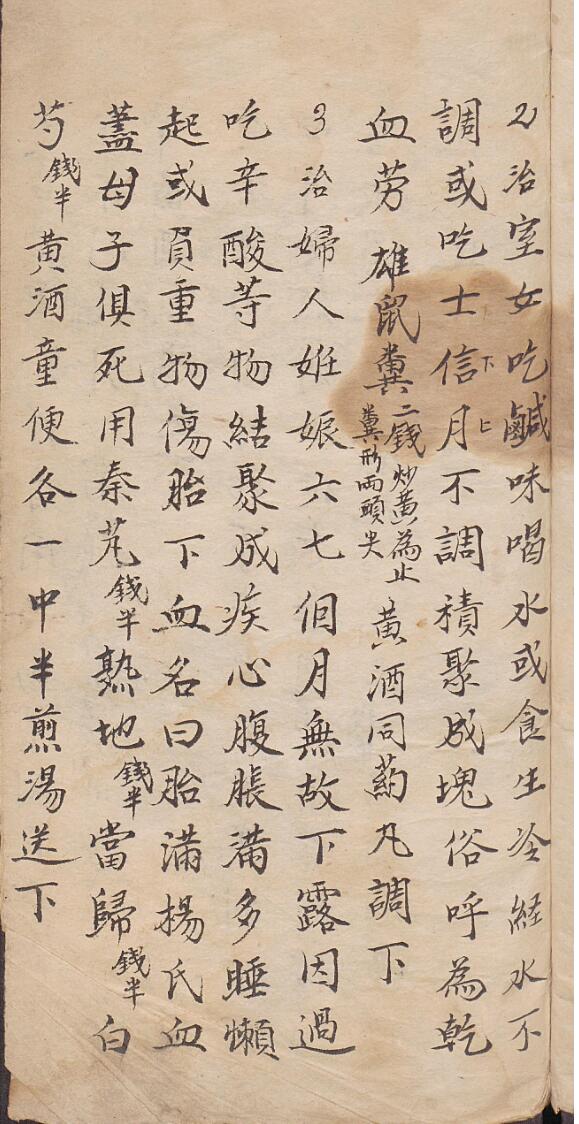 2治室女吃鹹味喝水或食生冷経水不
調或吃士信下月上不調積聚成塊俗呼為乾
血劳雄鼠糞二錢炒黄為止糞形兩頭尖黄酒同葯凡調下
3治婦人姙娠六七個月無故下露因過
吃辛酸䓁物結聚成疾心腹脹满多睡懒
起或負重物傷胎下血名曰胎满楊氏血
蓋母子俱死用秦艽錢半熟地錢半當歸錢半白
芍錢半黄酒童便各一中半煎湯送下